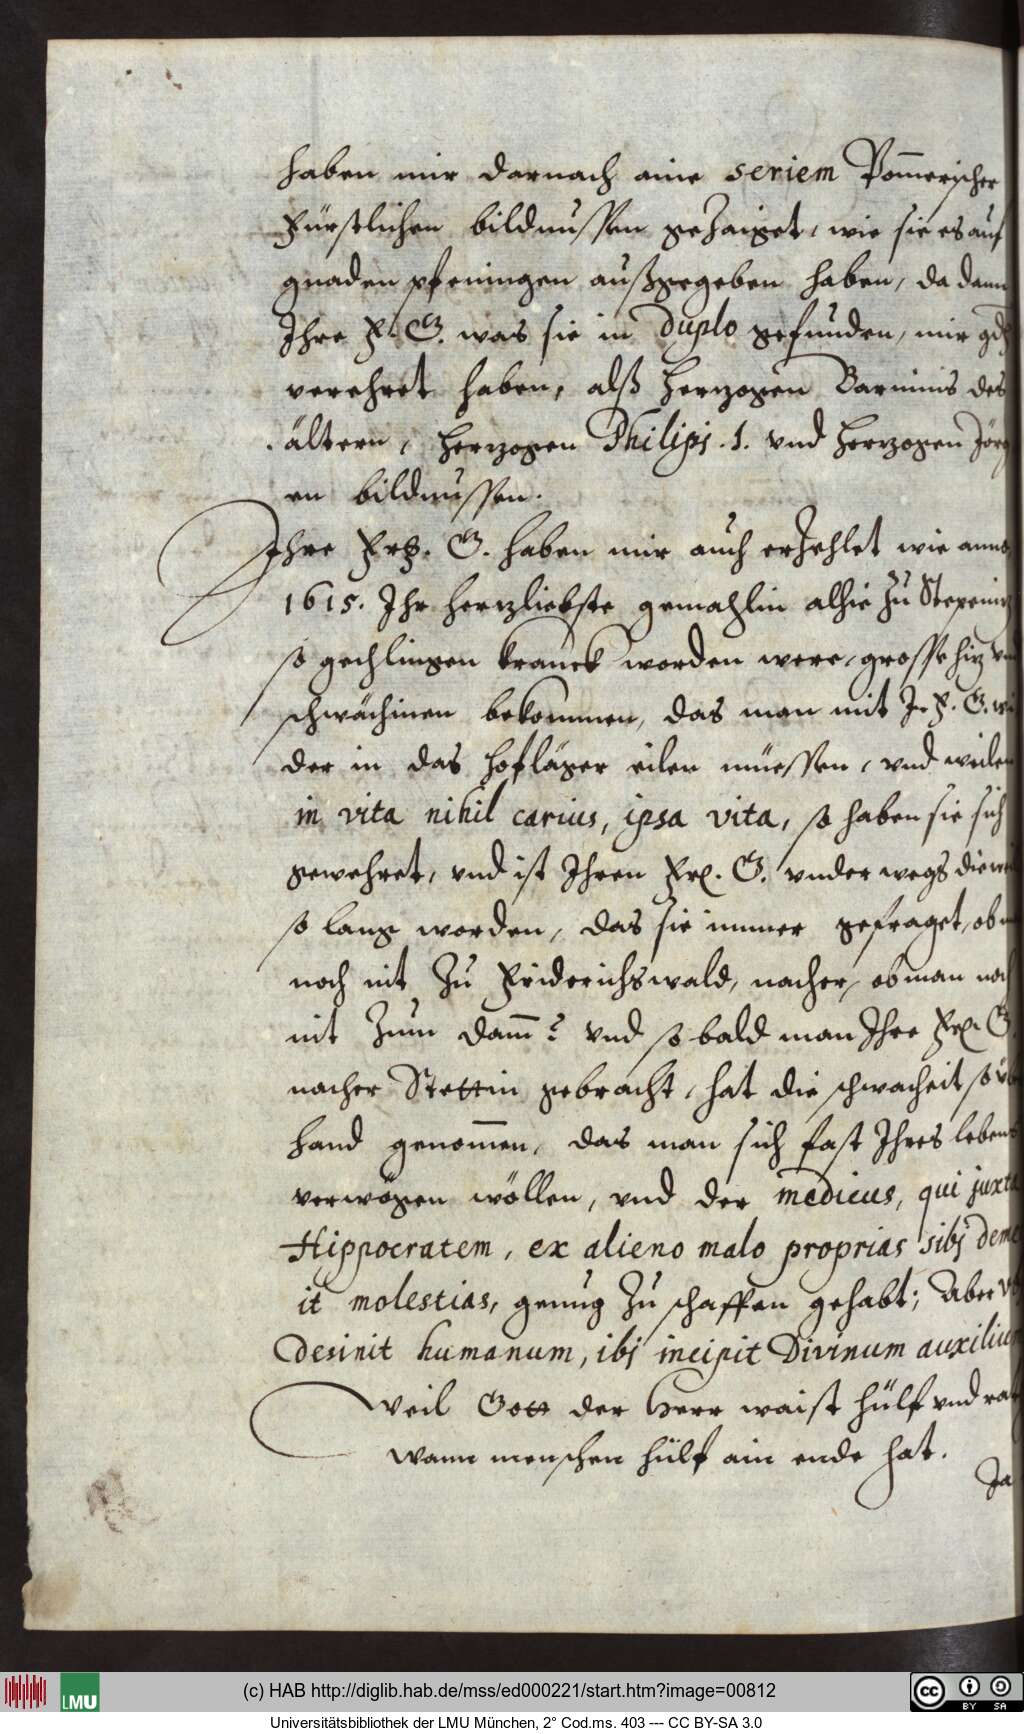 haben mir darnach aine seriem Pom̄erischer
Fürstlichen bildnussen gezaiget, wie sie es auf
gnaden pfeningen außgegeben haben, da dann
Ihre F. G. was sie in duplo gefunden, mir gd
verehret haben, alß herzogen Barnimis des
ältern, herzogen Philipi .1. vnd herzogen Jörg
en bildnussen.
Ihre Frl. G. haben mir auch erzehlet wie anno
1615. Ihr herzliebste gemahlin alhie zu Stepeniz
so gechlingen kranck worden were, grosse hiz vn
schwächinen bekommen, das man mit I. F. G. wi
der in das hofläger eilen müessen, vnd weilen
in vita nihil carius, ipsa vita, so haben sie sich
gewehret, vnd ist Ihren Frl. G. vnder wegs die wei
so lang worden, das sie immer gefraget, ob
noch nit zu Friderichswald, nacher, ob man noch
nit zum Dam̄? vnd so bald man Ihre Frl. G.
nacher Stettin gebracht, hat die schwacheit so üb
hand genom̄en, das man sich fast Ihres lebens
verwögen wöllen, vnd der medicus, qui juxta
Hippocratem, ex alieno malo proprias sibj deme
it molestias, genug zu schaffen gehabt; Aber
Desinit humanum, ibj incipit Divinum auxilium
Weil Gott der Herr waist hülf vnd rat
wann menschen hülf ain ende hat.
Ja
(c) HAB http://diglib.hab.de/mss/ed000221/start.htm?image=00812
LMU
cc BY SA
Universitätsbibliothek der LMU München, 2° Cod.ms. 403 --- CC BY-SA 3.0